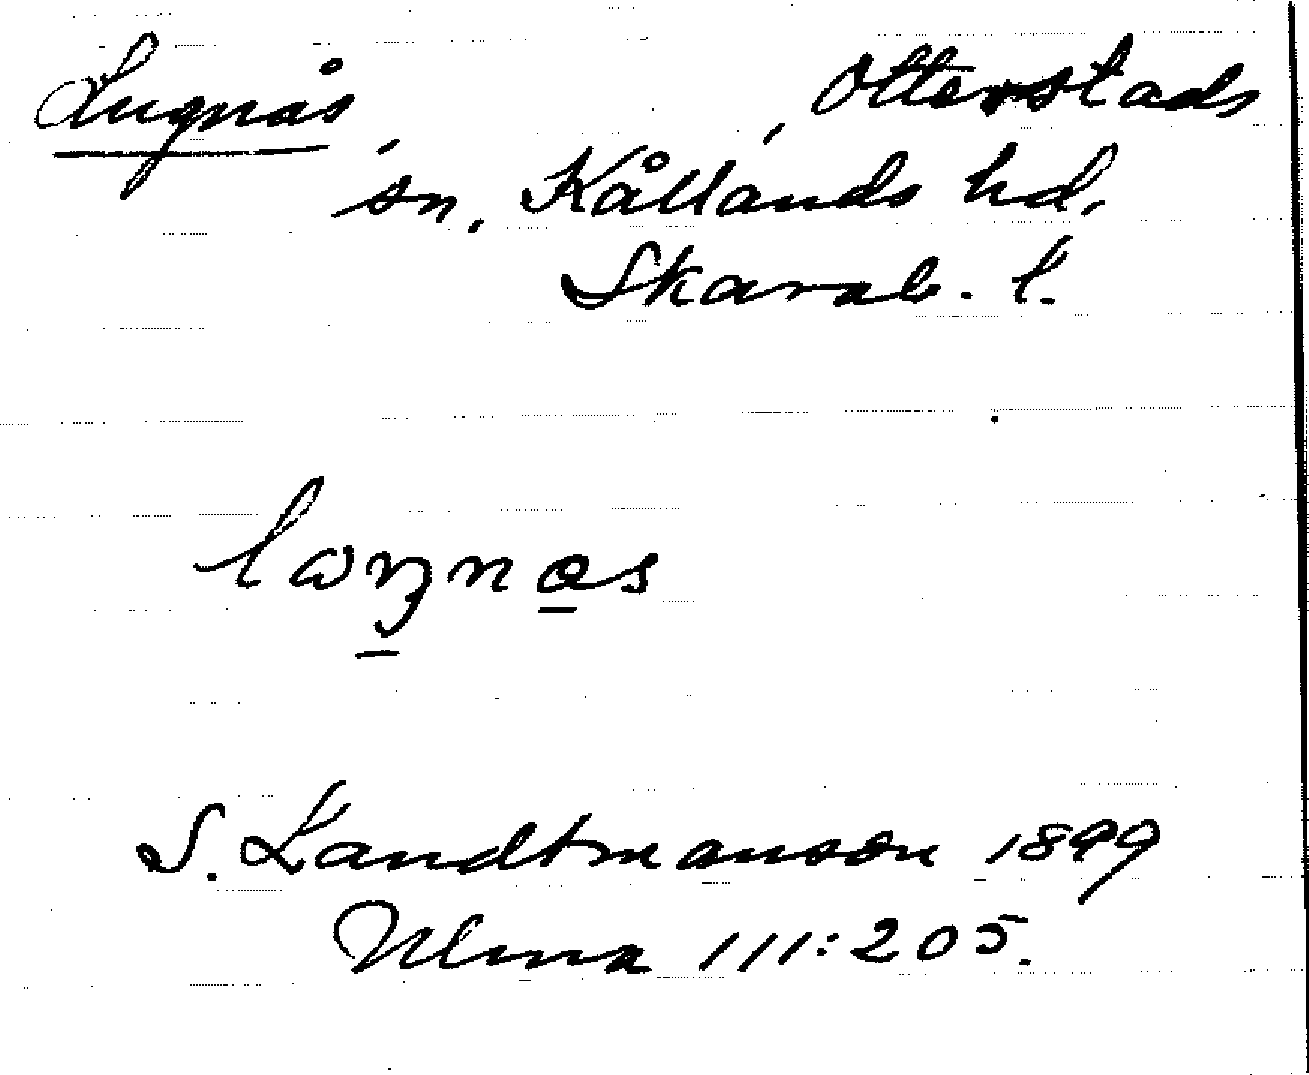 Lugnås, Otterstads
sn, Kållands hd,
Skarab. l.
lωŋnас
S. Landtmanson 1899
Ulma 111:205.